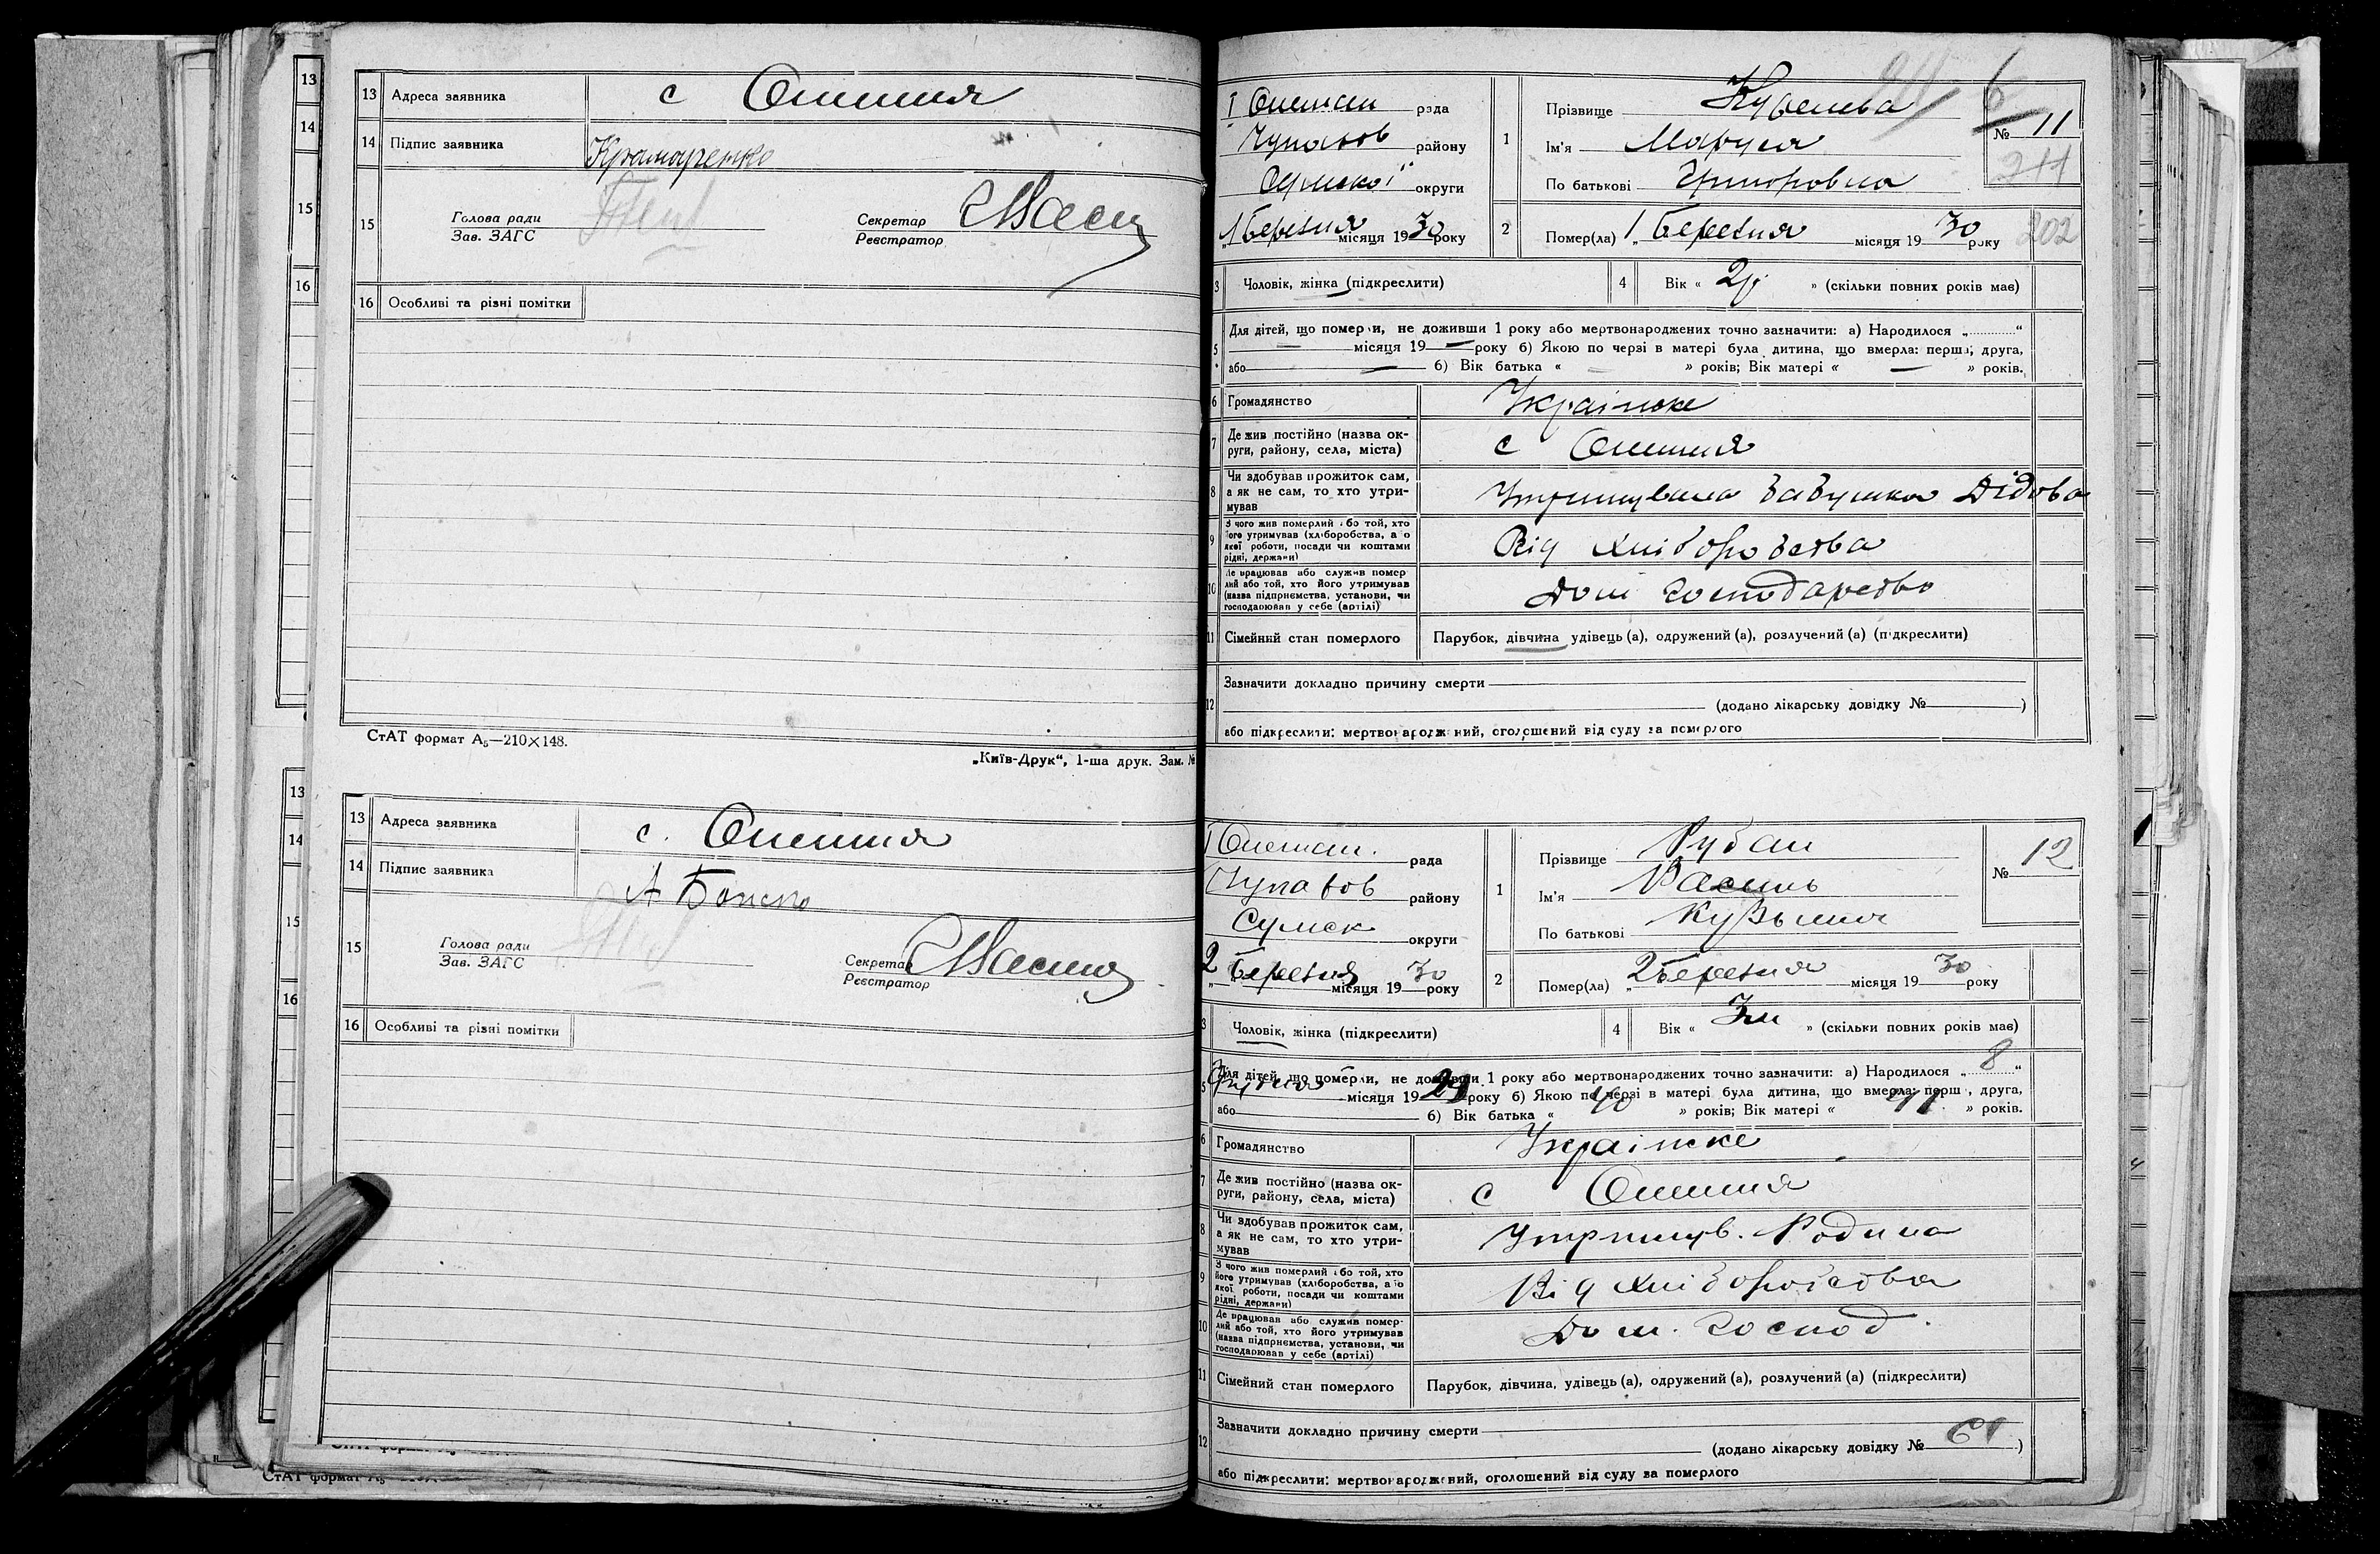 13 Адреса заявника с Олешня
14 Підпис заявника Крамаренко
15 Голова ради
Зав. ЗАГС
Секретар
Реєстратор
16 Особливі та різні помітки
СтАТ формат А₅—210×148.
„Київ-Друк“, 1-ша друк. Зам. №
13 Адреса заявника с. Олешня
14 Підпис заявника
15 Голова ради
Зав. ЗАГС
Секретар
Реєстратор
16 Особливі та різні помітки
СтАТ формат А₅
І Олешан рада
Чупахов району
Сумської округи
„1 Березня місяця 1930 року
1 Прізвище
Ім'я Маруся
По батькові Григоровна
№ 11
211
2 Помер(ла) 1 „Березня місяця 1930 року
202
3 Чоловік, жінка (підкреслити)
4 Вік « 2р. » (скільки повних років має)
5 Для дітей, що померли, не доживши 1 року або мертвонароджених точно зазначити: а) Народилося „ “
— місяця 19— року б) Якою по черзі в матері була дитина, що вмерла: перша, друга,
або — б) Вік батька « — » років; Вік матері « — » років.
6 Громадянство Українське
7 Де жив постійно (назва округи, району, села, міста) с Олешня
8 Чи здобував прожиток сам, а як не сам, то хто утримував Утримувала бабушка Дідова
9 З чого жив померлий або той, хто його утримував (хліборобства, або якої роботи, посади чи коштами рідні, держави) Від хліборобства
10 Де працював або служив померлий або той, хто його утримував (назва підприємства, установи, чи господарював у себе (артілі) Дом господарство
11 Сімейний стан померлого Парубок, дівчина удівець (а), одружений (а), розлучений (а) (підкреслити)
12 Зазначити докладно причину смерти
(додано лікарську довідку № )
або підкреслити: мертвонароджений, оголошений від суду за померлого
І Олешан. рада
Чупахов району
Сумськ округи
2 „Березня місяця 1930 року
1 Прізвище Рубан
Ім'я Василь
По батькові Кузьмич
№ 12
2 Помер(ла) „2 Березня місяця 1930 року
3 Чоловік, жінка (підкреслити)
4 Вік « 3м » (скільки повних років має)
5 Для дітей, що померли, не доживши 1 року або мертвонароджених точно зазначити: а) Народилося „ 8 “
Грудня місяця 1929 року б) Якою по черзі в матері була дитина, що вмерла: перша, друга,
або б) Вік батька « 40 » років; Вік матері « » років.
6 Громадянство Українське
7 Де жив постійно (назва округи, району, села, міста) с Олешня
8 Чи здобував прожиток сам, а як не сам, то хто утримував Утримув. Родина
9 З чого жив померлий або той, хто його утримував (хліборобства, або якої роботи, посади чи коштами рідні, держави) Від хліборобства
10 Де працював або служив померлий або той, хто його утримував (назва підприємства, установи, чи господарював у себе (артілі) Дом. господ.
11 Сімейний стан померлого Парубок, дівчина, удівець (а), одружений (а), розлучений (а) (підкреслити)
12 Зазначити докладно причину смерти
(додано лікарську довідку № )
або підкреслити: мертвонароджений, оголошений від суду за померлого